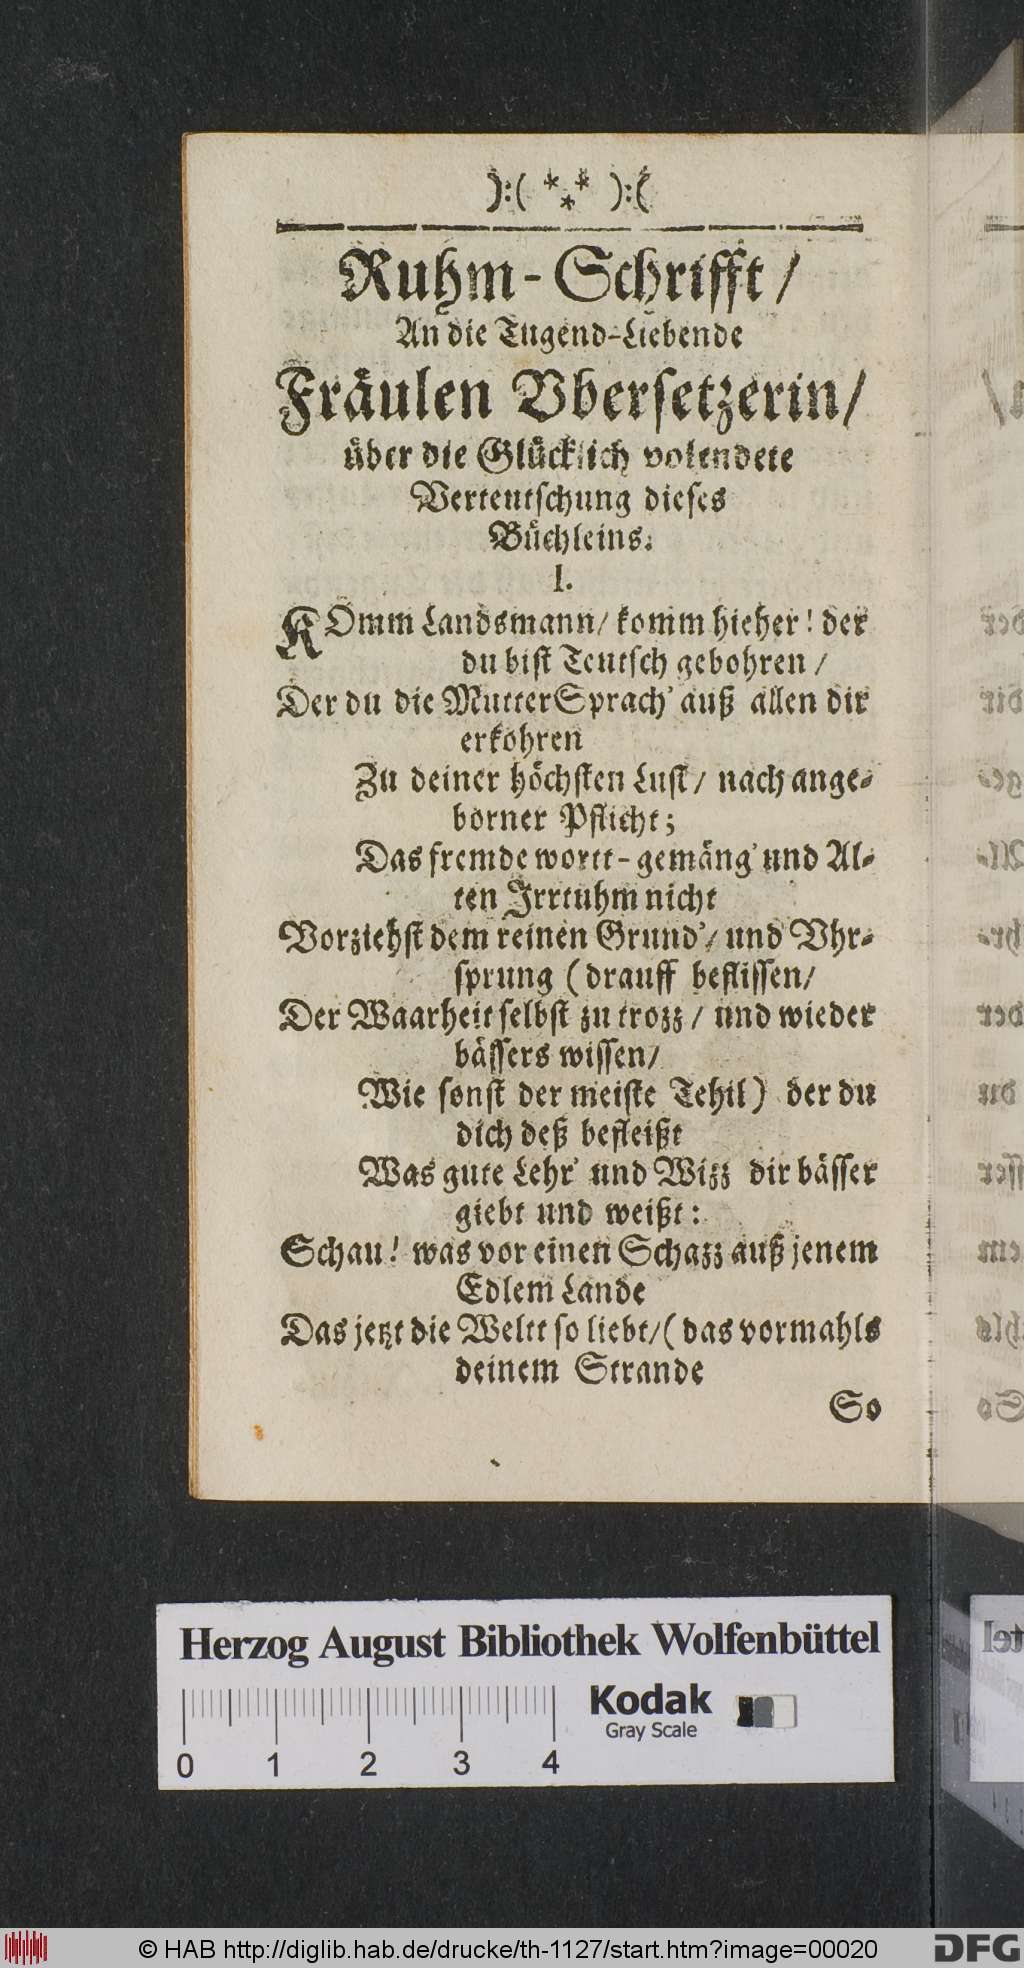 ):( *** ):(
Ruhm-Schrifft /
An die Tugend-Liebende
Fräulen Vbersetzerin/
über die Glücklich volendete
Verteutschung dieses
Büchleins.
I.
KOmm Landsmann/ komm hieher! der
du bist Teutsch gebohren /
Der du die MutterSprach' auß allen dir
erkohren
Zu deiner höchsten Lust / nach ange-
borner Pflicht;
Das fremde wortt-gemäng' und Al-
ten Irrtuhm nicht
Vorziehst dem reinen Grund'/ und Vhr-
sprung (drauff beflissen/
Der Waarheit selbst zu trozz / und wieder
bässers wissen/
Wie sonst der meiste Tehil) der du
dich deß befleißt
Was gute Lehr' und Wizz dir bässer
giebt und weißt:
Schau! was vor einen Schazz auß jenem
Edlem Lande
Das jetzt die Weltt so liebt/(das vormahls
deinem Strande
So
Herzog August Bibliothek Wolfenbüttel
Kodak
Gray Scale
0 1 2 3 4
© HAB http://diglib.hab.de/drucke/th-1127/start.htm?image=00020
DFG